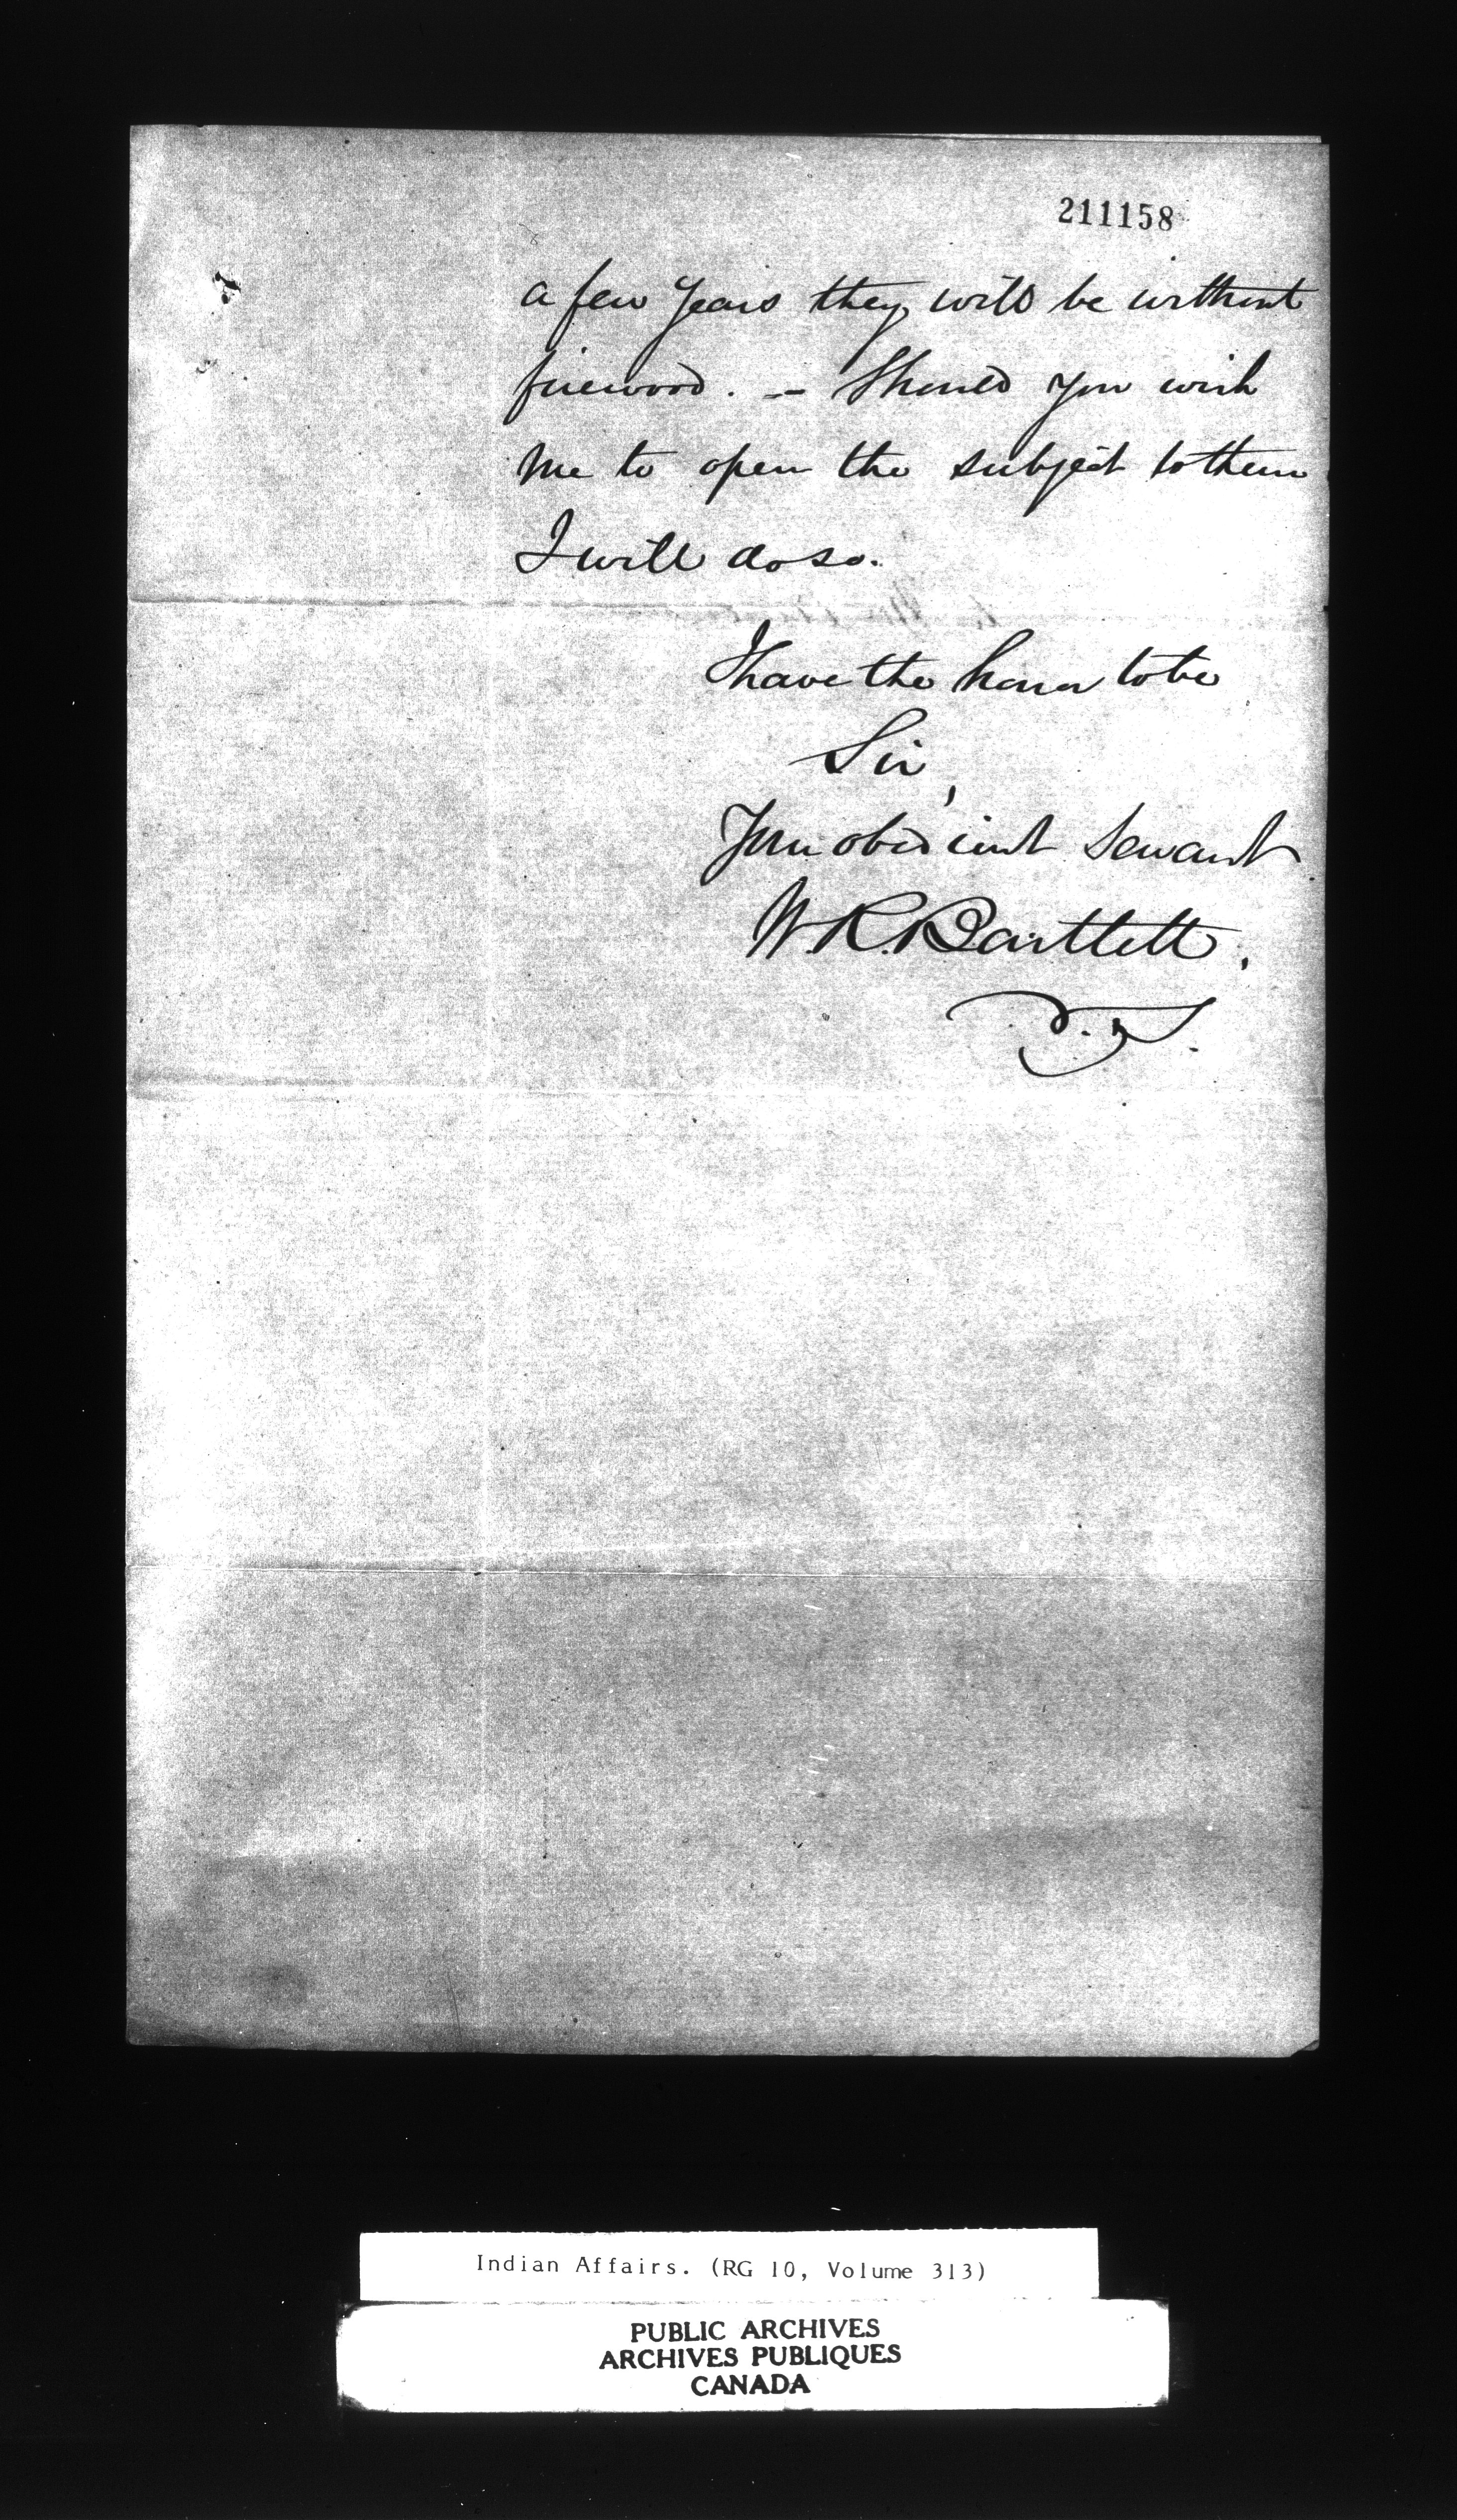 211158
a few years they will be without
firewood. — Should you wish
me to open the subject to them
I will do so.
I have the honor to be
Sir,
Your obedient servant
W. R. Bartlett.
Indian Affairs. (RG 10, Volume 313)
PUBLIC ARCHIVES
ARCHIVES PUBLIQUES
CANADA